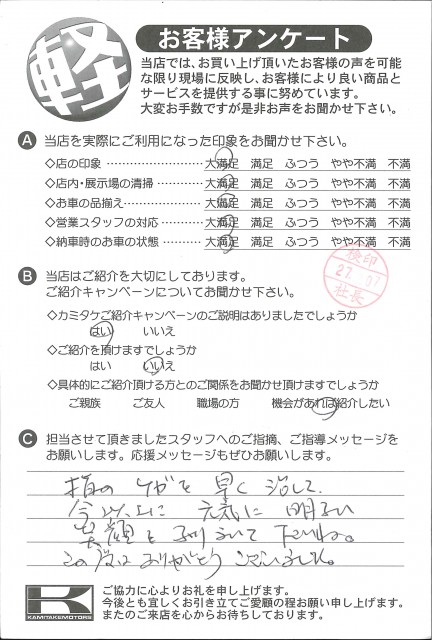 軽
お客様アンケート
当店では、お買い上げ頂いたお客様の声を可能
な限り現場に反映し、お客様により良い商品と
サービスを提供する事に努めています。
大変お手数ですが是非お声をお聞かせ下さい。
A 当店を実際にご利用になった印象をお聞かせ下さい。
◇店の印象 ………………… 大満足 満足 ふつう やや不満 不満
◇店内・展示場の清掃 ………… 大満足 満足 ふつう やや不満 不満
◇お車の品揃え ……………… 大満足 満足 ふつう やや不満 不満
◇営業スタッフの対応 ………… 大満足 満足 ふつう やや不満 不満
◇納車時のお車の状態 ………… 大満足 満足 ふつう やや不満 不満
検印
27. 07
社長
B 当店はご紹介を大切にしてあります。
ご紹介キャンペーンについてお聞かせ下さい。
◇カミタケご紹介キャンペーンのご説明はありましたでしょうか
はい いいえ
◇ご紹介を頂けますでしょうか
はい いいえ
◇具体的にご紹介頂ける方とのご関係をお聞かせ頂けますでしょうか
ご親族 ご友人 職場の方 機会があれば紹介したい
C 担当させて頂きましたスタッフへのご指摘、ご指導メッセージを
お願いします。応援メッセージもぜひお願いします。
指の ケガを 早く 治して
今以上に 元気に 明るい
笑顔を ふりまいて 下さいね。
この度は ありがとう ございました。
K
KAMITAKEMOTORS
ご協力に心よりお礼を申し上げます。
今後とも宜しくお引き立てご愛顧の程お願い申し上げます。
またのご来店を心からお待ちしております。